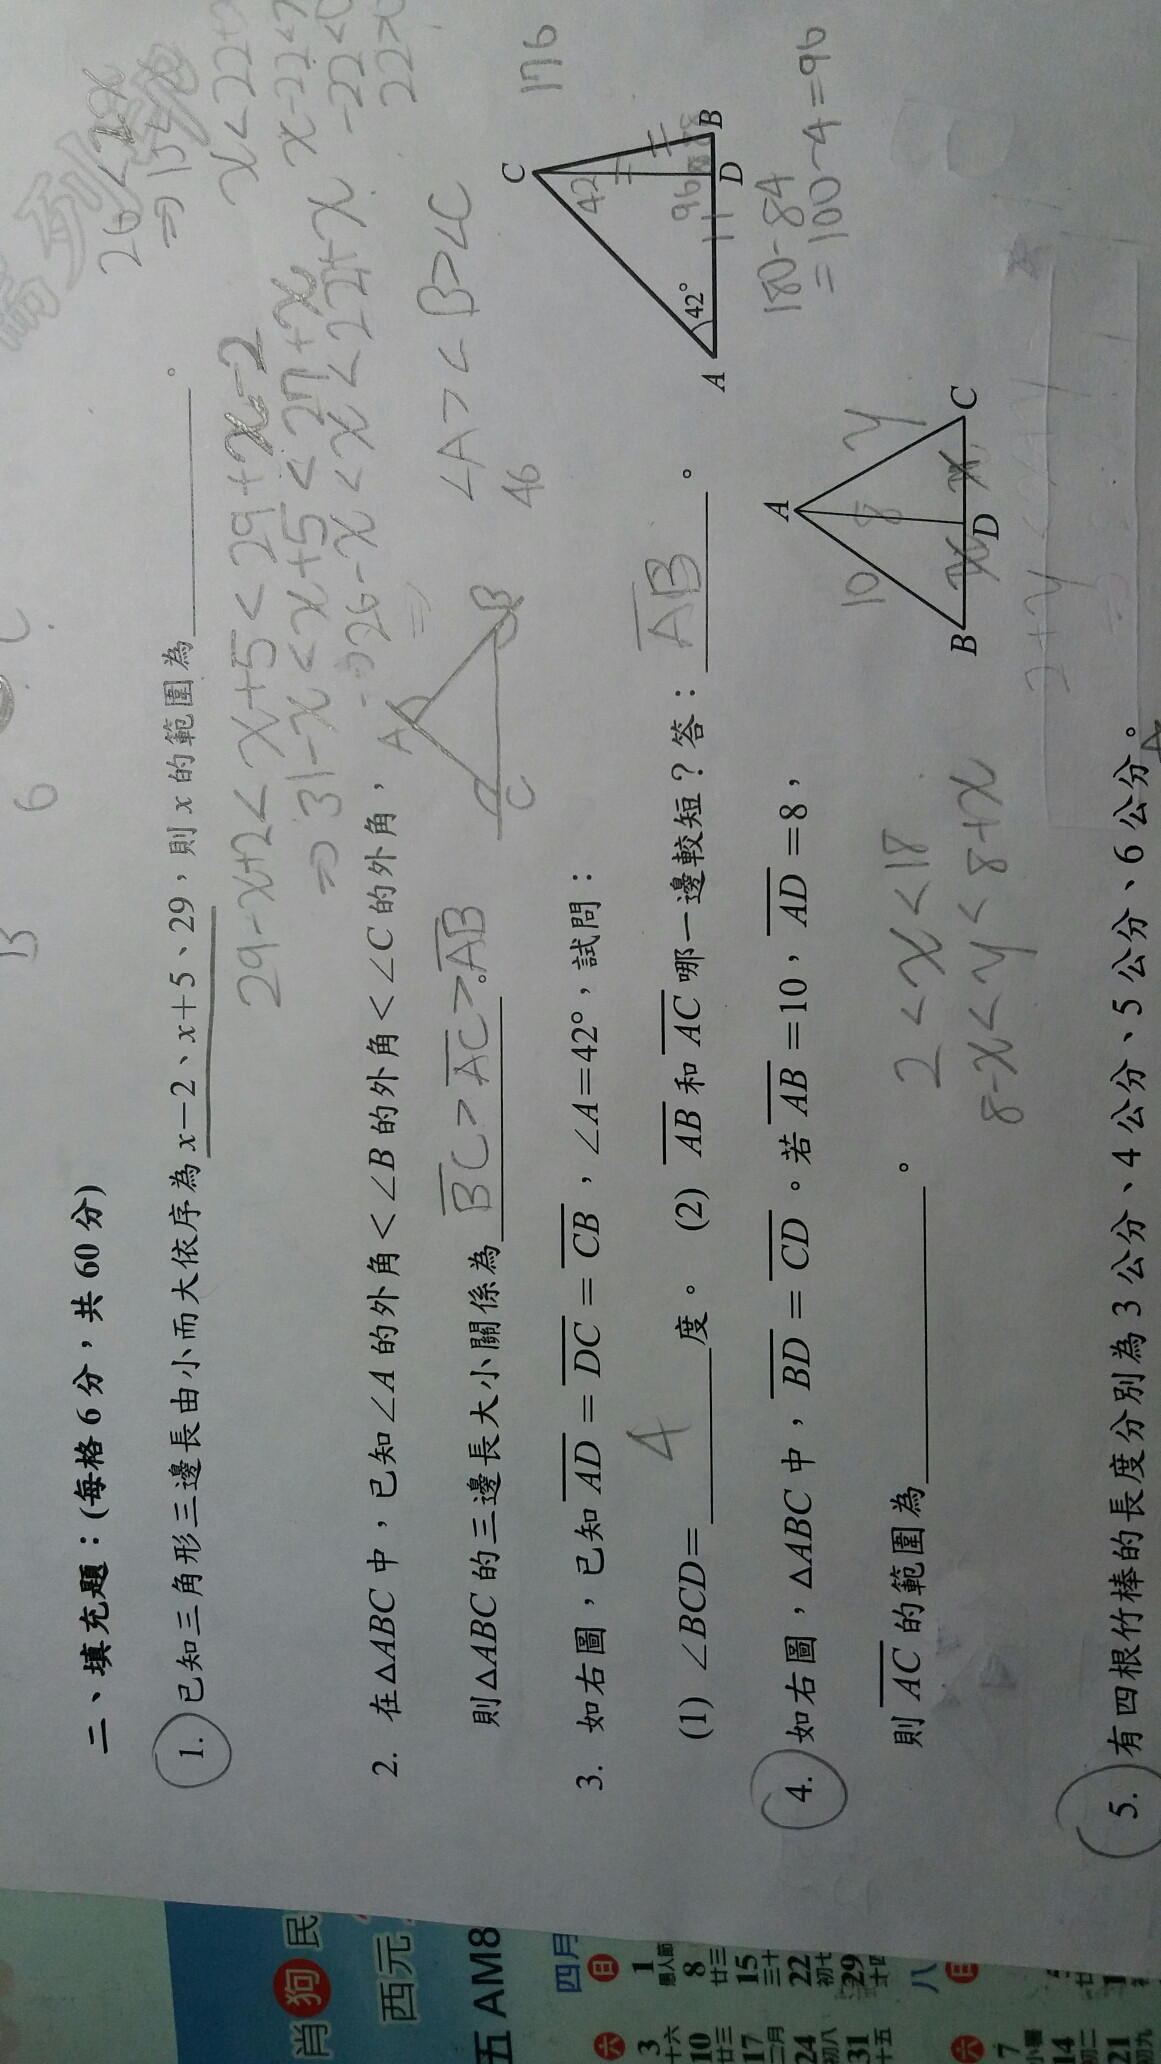 二、填充題：(每格 6 分，共 60 分)
1. 已知三角形三邊長由小而大依序為 x－2、x＋5、29，則 x 的範圍為
。
29-x+2 < x+5 < 29+x-2
⇒ 31-x < x+5 < 27+x
26-x < x < 22+x
2. 在△ABC 中，已知∠A 的外角＜∠B 的外角＜∠C 的外角，
則△ABC 的三邊長大小關係為 BC > AC > AB 。
A
B
C
∠A > ∠B > ∠C
46
176
3. 如右圖，已知 AD＝DC＝CB，∠A＝42°，試問：
(1) ∠BCD＝ 4 度。 (2) AB 和 AC 哪一邊較短？答： AB 。
C
42
96
A
42°
D
B
180-84
=100-4=96
4. 如右圖，△ABC 中，BD＝CD。若 AB＝10，AD＝8，
則 AC 的範圍為 。
2 < x < 18
8-x < y < 8+x
A
10
8
y
B
x
D
x
C
5. 有四根竹棒的長度分別為 3 公分、4 公分、5 公分、6 公分。
肖狗民
西元
五 AM8
四月
日
六
1
8
廿三
15
三十
22
初七
29
十四
3
十六
10
廿三
17
二月
24
初八
31
十五
八
日
六
7
小暑
14
初二
21
初九